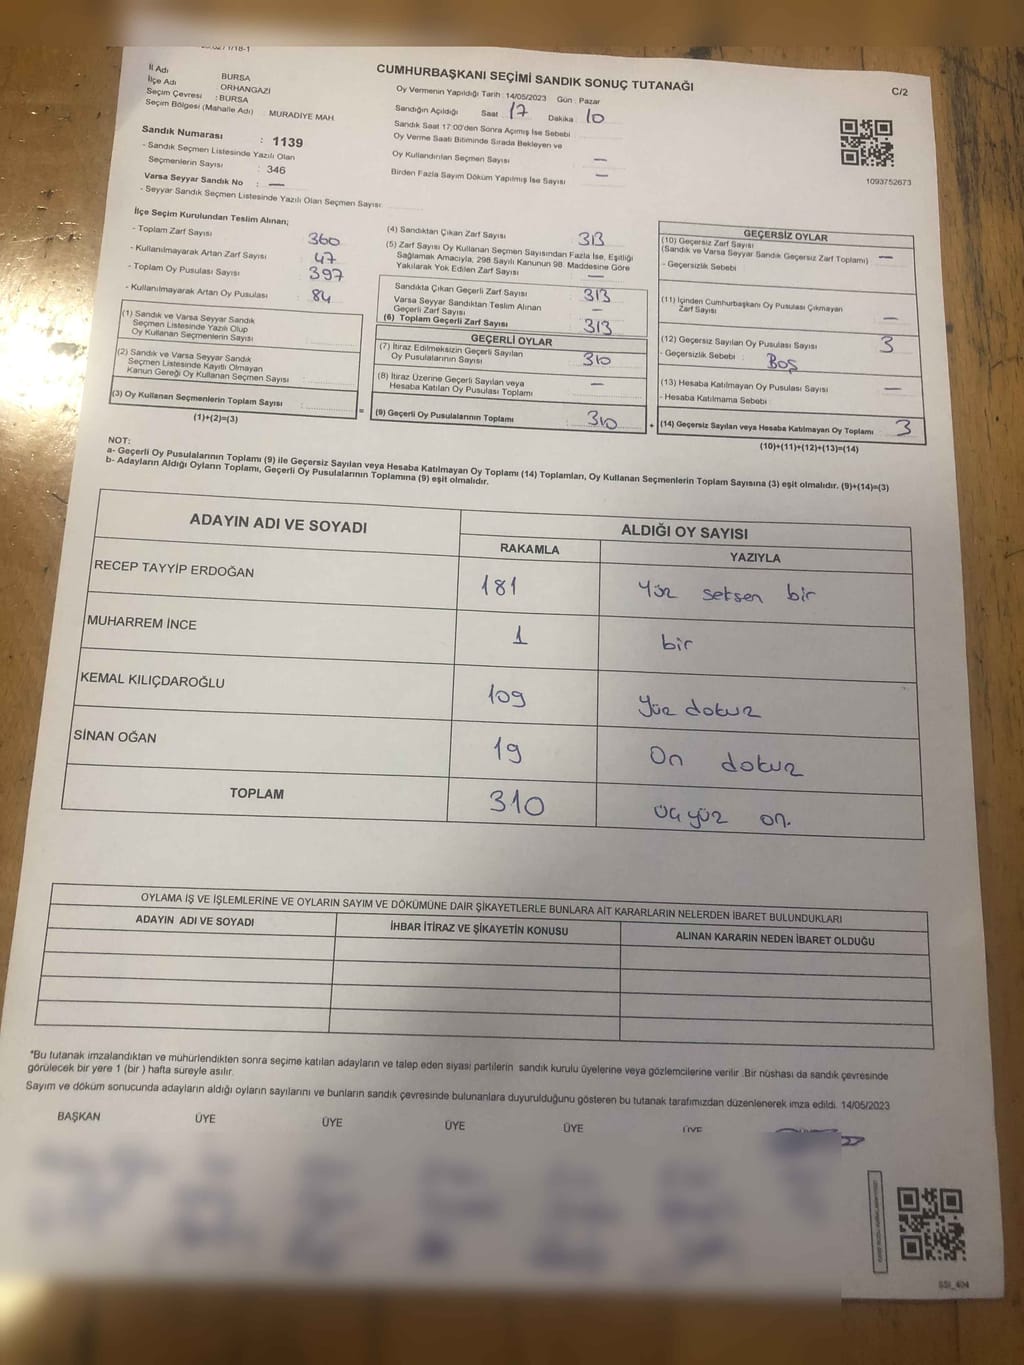 İl Adı
BURSA
İlçe Adı
ORHANGAZİ
Seçim Çevresi : BURSA
Seçim Bölgesi (Mahalle Adı) : MURADİYE MAH.
CUMHURBAŞKANI SEÇİMİ SANDIK SONUÇ TUTANAĞI
C/2
Oy Vermenin Yapıldığı Tarih : 14/05/2023 Gün : Pazar
Sandığın Açıldığı Saat 17 Dakika 10
Sandık Saat 17:00'den Sonra Açımış İse Sebebi
Oy Verme Saati Bitiminde Sırada Bekleyen ve
Oy Kullandırılan Seçmen Sayısı —
Birden Fazla Sayım Döküm Yapılmış İse Sayısı —
1093752673
Sandık Numarası : 1139
- Sandık Seçmen Listesinde Yazılı Olan
Seçmenlerin Sayısı : 346
Varsa Seyyar Sandık No : —
- Seyyar Sandık Seçmen Listesinde Yazılı Olan Seçmen Sayısı:
İlçe Seçim Kurulundan Teslim Alınan;
- Toplam Zarf Sayısı 360
- Kullanılmayarak Artan Zarf Sayısı 47
- Toplam Oy Pusulası Sayısı 397
- Kullanılmayarak Artan Oy Pusulası 84
(1) Sandık ve Varsa Seyyar Sandık
Seçmen Listesinde Yazılı Olup
Oy Kullanan Seçmenlerin Sayısı :
(2) Sandık ve Varsa Seyyar Sandık
Seçmen Listesinde Kayıtlı Olmayan
Kanun Gereği Oy Kullanan Seçmen Sayısı :
(3) Oy Kullanan Seçmenlerin Toplam Sayısı :
(1)+(2)=(3)
(4) Sandıktan Çıkan Zarf Sayısı 313
(5) Zarf Sayısı Oy Kullanan Seçmen Sayısından Fazla İse, Eşitliği
Sağlamak Amacıyla; 298 Sayılı Kanunun 98. Maddesine Göre
Yakılarak Yok Edilen Zarf Sayısı —
Sandıkta Çıkan Geçerli Zarf Sayısı 313
Varsa Seyyar Sandıktan Teslim Alınan
Geçerli Zarf Sayısı —
(6) Toplam Geçerli Zarf Sayısı 313
GEÇERLİ OYLAR
(7) İtiraz Edilmeksizin Geçerli Sayılan
Oy Pusulalarının Sayısı 310
(8) İtiraz Üzerine Geçerli Sayılan veya
Hesaba Katılan Oy Pusulası Toplamı —
=
(9) Geçerli Oy Pusulalarının Toplamı 310
GEÇERSİZ OYLAR
(10) Geçersiz Zarf Sayısı
(Sandık ve Varsa Seyyar Sandık Geçersiz Zarf Toplamı) —
- Geçersizlik Sebebi
(11) İçinden Cumhurbaşkanı Oy Pusulası Çıkmayan
Zarf Sayısı —
(12) Geçersiz Sayılan Oy Pusulası Sayısı 3
- Geçersizlik Sebebi : BOŞ
(13) Hesaba Katılmayan Oy Pusulası Sayısı —
- Hesaba Katılmama Sebebi
+ (14) Geçersiz Sayılan veya Hesaba Katılmayan Oy Toplamı 3
(10)+(11)+(12)+(13)=(14)
NOT:
a- Geçerli Oy Pusulalarının Toplamı (9) ile Geçersiz Sayılan veya Hesaba Katılmayan Oy Toplamı (14) Toplamları, Oy Kullanan Seçmenlerin Toplam Sayısına (3) eşit olmalıdır. (9)+(14)=(3)
b- Adayların Aldığı Oyların Toplamı, Geçerli Oy Pusulalarının Toplamına (9) eşit olmalıdır.
ADAYIN ADI VE SOYADI
ALDIĞI OY SAYISI
RAKAMLA YAZIYLA
RECEP TAYYİP ERDOĞAN 181 Yüz seksen bir
MUHARREM İNCE 1 bir
KEMAL KILIÇDAROĞLU 109 Yüz dokuz
SİNAN OĞAN 19 On dokuz
TOPLAM 310 üçyüz on.
OYLAMA İŞ VE İŞLEMLERİNE VE OYLARIN SAYIM VE DÖKÜMÜNE DAİR ŞİKAYETLERLE BUNLARA AİT KARARLARIN NELERDEN İBARET BULUNDUKLARI
ADAYIN ADI VE SOYADI İHBAR İTİRAZ VE ŞİKAYETİN KONUSU ALINAN KARARIN NEDEN İBARET OLDUĞU
*Bu tutanak imzalandıktan ve mühürlendikten sonra seçime katılan adayların ve talep eden siyasi partilerin sandık kurulu üyelerine veya gözlemcilerine verilir .Bir nüshası da sandık çevresinde
görülecek bir yere 1 (bir ) hafta süreyle asılır.
Sayım ve döküm sonucunda adayların aldığı oyların sayılarını ve bunların sandık çevresinde bulunanlara duyurulduğunu gösteren bu tutanak tarafımızdan düzenlenerek imza edildi. 14/05/2023
BAŞKAN ÜYE ÜYE ÜYE ÜYE ÜYE